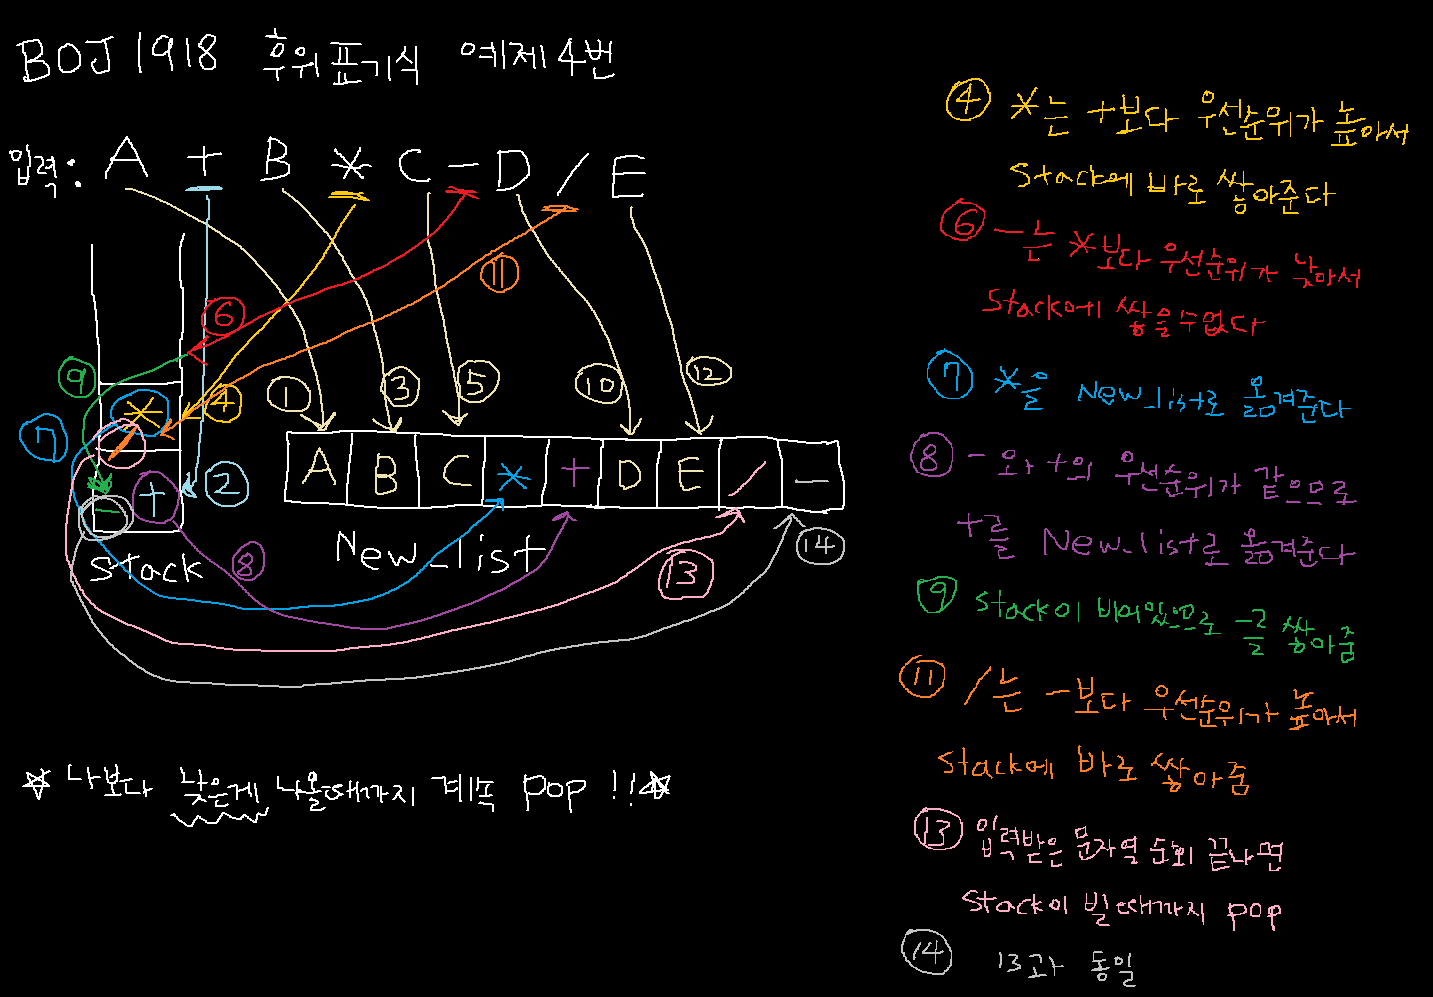 BOJ 1918 후위 표기식 예제 4번
입력: A + B * C - D / E
⑥
⑪
⑨
④
①
③
⑤
⑩
⑫
⑦
*
/
A B C * + D E / -
- +
②
stack
New_list
⑧
⑬
⑭
☆ 나보다 낮은게 나올때까지 계속 pop !!☆
④ *는 +보다 우선순위가 높아서
stack에 바로 쌓아준다
⑥ -는 *보다 우선순위가 낮아서
stack에 쌓을수없다
⑦ *을 New_list로 옮겨준다
⑧ - 와 +의 우선순위가 같으므로
+를 New_list로 옮겨준다
⑨ stack이 비어있으므로 -를 쌓아줌
⑪ /는 -보다 우선순위가 높아서
stack에 바로 쌓아줌
⑬ 입력받은 문자열 순회 끝나면
stack이 빌때까지 pop
⑭ 13과 동일